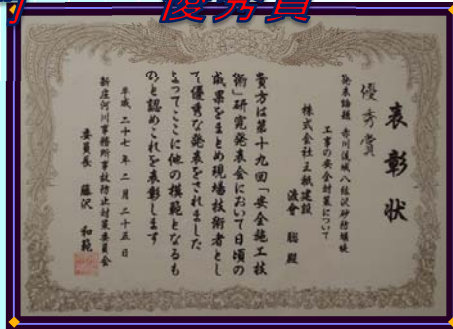 優秀賞
表彰状
優秀賞
発表論題 赤川流域八紘沢砂防堰堤
工事の安全対策について
株式会社正栄建設
渡會 聡 殿
貴方は第十九回「安全施工技
術」研究発表会において日頃の
成果をまとめ現場技術者とし
て優秀な発表をされました
よってここに他の模範となるも
のと認めこれを表彰します
平成二十七年二月二十五日
新庄河川事務所事故防止対策委員会
委員長 藤沢 和範